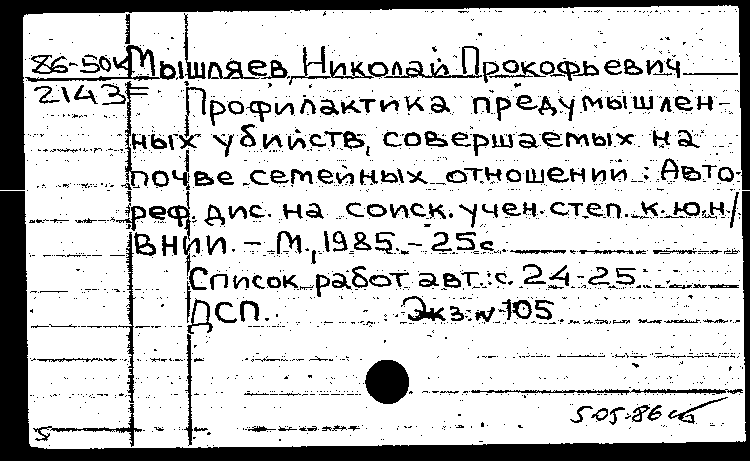 86-50к Мышляев, Николай Прокофьевич
2143= Профилактика предумышлен-
ных убийств, совершаемых на
почве семейных отношений: Авто-
реф. дис. на соиск. учен. степ. к.ю.н/
ВНИИ. - М., 1985. - 25с
Список работ авт.: с. 24-25
ДСП. Экз. № 105
5.05.86
5